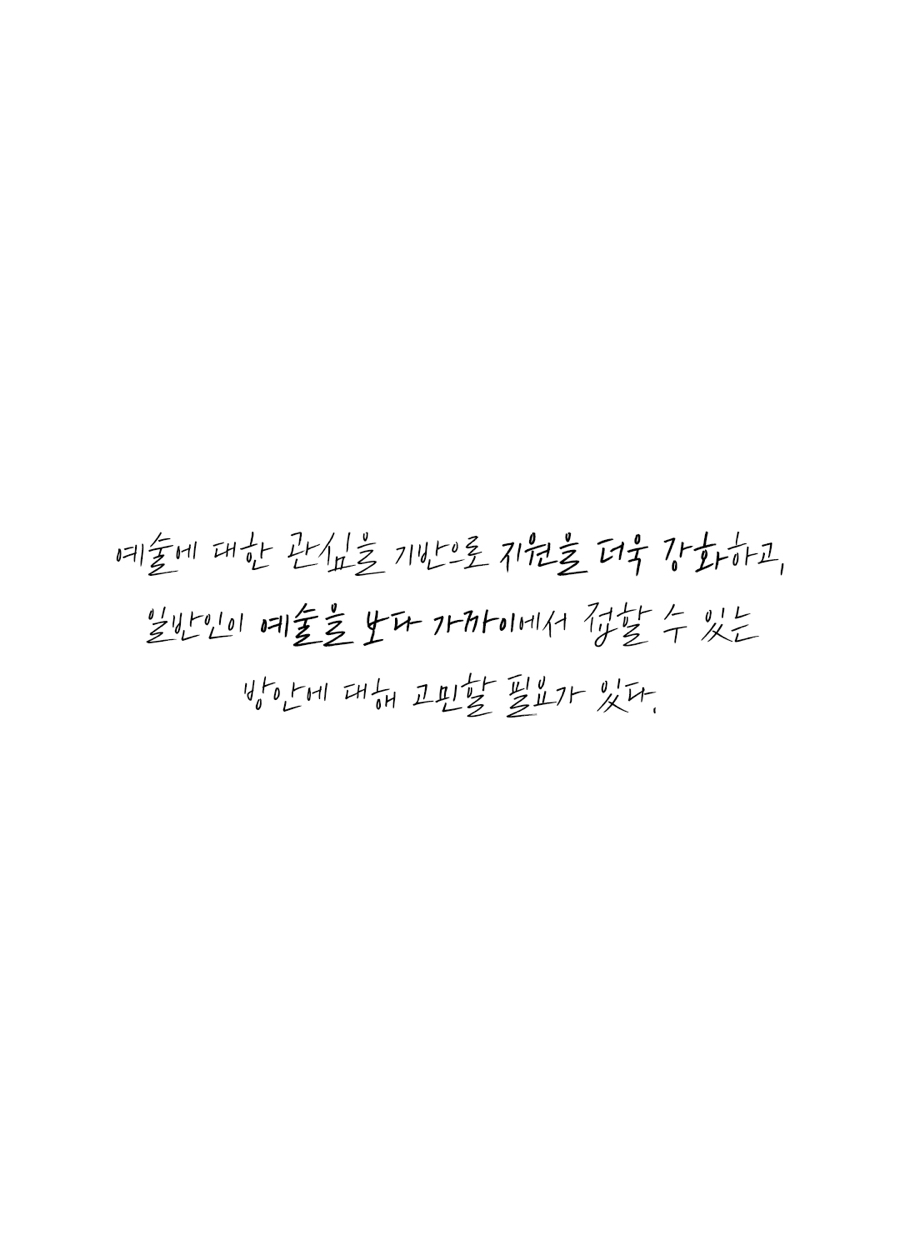 예술에 대한 관심을 기반으로 지원을 더욱 강화하고,
일반인이 예술을 보다 가까이에서 접할 수 있는
방안에 대해 고민할 필요가 있다.